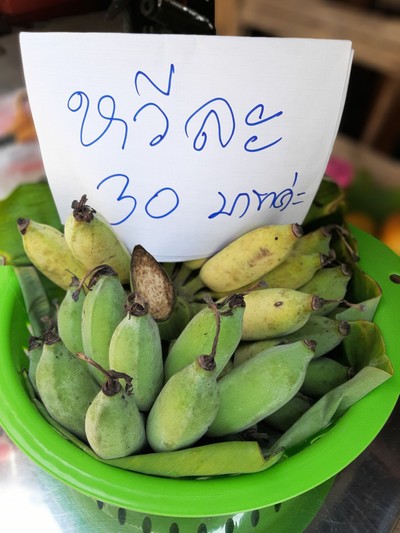 หวีละ
30 บาทค่ะ